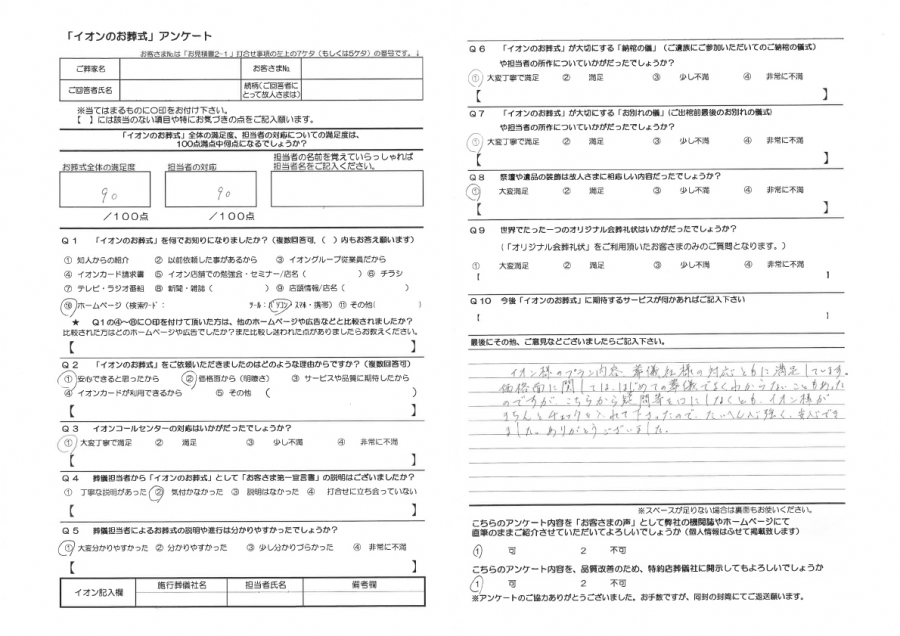 「イオンのお葬式」アンケート
お客さま№は「お見積書2-1」打合せ事項の左上の7ケタ(もしくは5ケタ)の番号です。↓
ご葬家名 お客さま№
ご回答者氏名 続柄(ご回答者にとって故人さまは)
※当てはまるものに〇印をお付け下さい。
【 】には該当のない項目や特にお気づきの点をご記入願います。
「イオンのお葬式」全体の満足度、担当者の対応についての満足度は、
100点満点中何点になるでしょうか?
お葬式全体の満足度 担当者の対応 担当者の名前を覚えていらっしゃれば
担当者名をご記入ください。
90 90
/100点 /100点
Q1 「イオンのお葬式」を何でお知りになりましたか?(複数回答可、( )内もお答え願います)
① 知人からの紹介 ② 以前依頼した事があるから ③ イオングループ従業員だから
④ イオンカード請求書 ⑤ イオン店舗での勉強会・セミナー/店名( ) ⑥ チラシ
⑦ テレビ・ラジオ番組 ⑧ 新聞・雑誌( ) ⑨ 店頭情報/店名( )
⑩ ホームページ(検索ワード: ツール:パソコン スマホ・携帯) ⑪ その他( )
★ Q1の④~⑩に〇印を付けて頂いた方は、他のホームページや広告などと比較されましたか?
比較された方はどのホームページや広告でしたか?また比較し迷われた点がありましたらお教えください。
【 】
Q2 「イオンのお葬式」をご依頼いただきましたのはどのような理由からですか?(複数回答可)
① 安心できると思ったから ② 価格面から(明瞭さ) ③ サービスや品質に期待したから
④ イオンカードが利用できるから ⑤ その他 ( )
【 】
Q3 イオンコールセンターの対応はいかがだったでしょうか?
① 大変丁寧で満足 ② 満足 ③ 少し不満 ④ 非常に不満
【 】
Q4 葬儀担当者から「イオンのお葬式」として「お客さま第一宣言書」の説明はございましたか?
① 丁寧な説明があった ② 気付かなかった ③ 説明はなかった ④ 打合せに立ち会っていない
【 】
Q5 葬儀担当者によるお葬式の説明や進行は分かりやすかったでしょうか?
① 大変分かりやすかった ② 分かりやすかった ③ 少し分かりづらかった ④ 非常に不満
【 】
イオン記入欄 施行葬儀社名 担当者氏名 備考欄
Q6 「イオンのお葬式」が大切にする「納棺の儀」(ご遺族にご参加いただいてのご納棺の儀式)
や担当者の所作についていかがだったでしょうか?
① 大変丁寧で満足 ② 満足 ③ 少し不満 ④ 非常に不満
【 】
Q7 「イオンのお葬式」が大切にする「お別れの儀」(ご出棺前最後のお別れの儀式)
や担当者の所作についていかがだったでしょうか?
① 大変丁寧で満足 ② 満足 ③ 少し不満 ④ 非常に不満
【 】
Q8 祭壇や遺品の装飾は故人さまに相応しい内容だったでしょうか?
① 大変満足 ② 満足 ③ 少し不満 ④ 非常に不満
【 】
Q9 世界でたった一つのオリジナル会葬礼状はいかがだったでしょうか?
(「オリジナル会葬礼状」をご利用頂いたお客さまのみのご質問となります。)
① 大変満足 ② 満足 ③ 少し不満 ④ 非常に不満
【 】
Q10 今後「イオンのお葬式」に期待するサービスが何かあればご記入下さい
【 】
最後にその他、ご意見などございましたらご記入下さい。
イオン様のプラン内容、葬儀社様の対応ともに満足しています。
価格面に関しては、はじめての葬儀でよくわからないこともあった
のですが、こちらから疑問等を口にしなくとも、イオン様が
きちんとチェックを入れて下さったので、たいへん心強く、安心でき
ました。ありがとうございました。
※スペースが足りない場合は裏面もお使いください。
こちらのアンケート内容を「お客さまの声」として弊社の機関誌やホームページにて
直筆のままご紹介させていただいてよろしいでしょうか(個人情報はふせて掲載致します)
1 可 2 不可
こちらのアンケート内容を、品質改善のため、特約店葬儀社に開示してもよろしいでしょうか
1 可 2 不可
※アンケートのご協力ありがとうございました。お手数ですが、同封の封筒にてご返送願います。